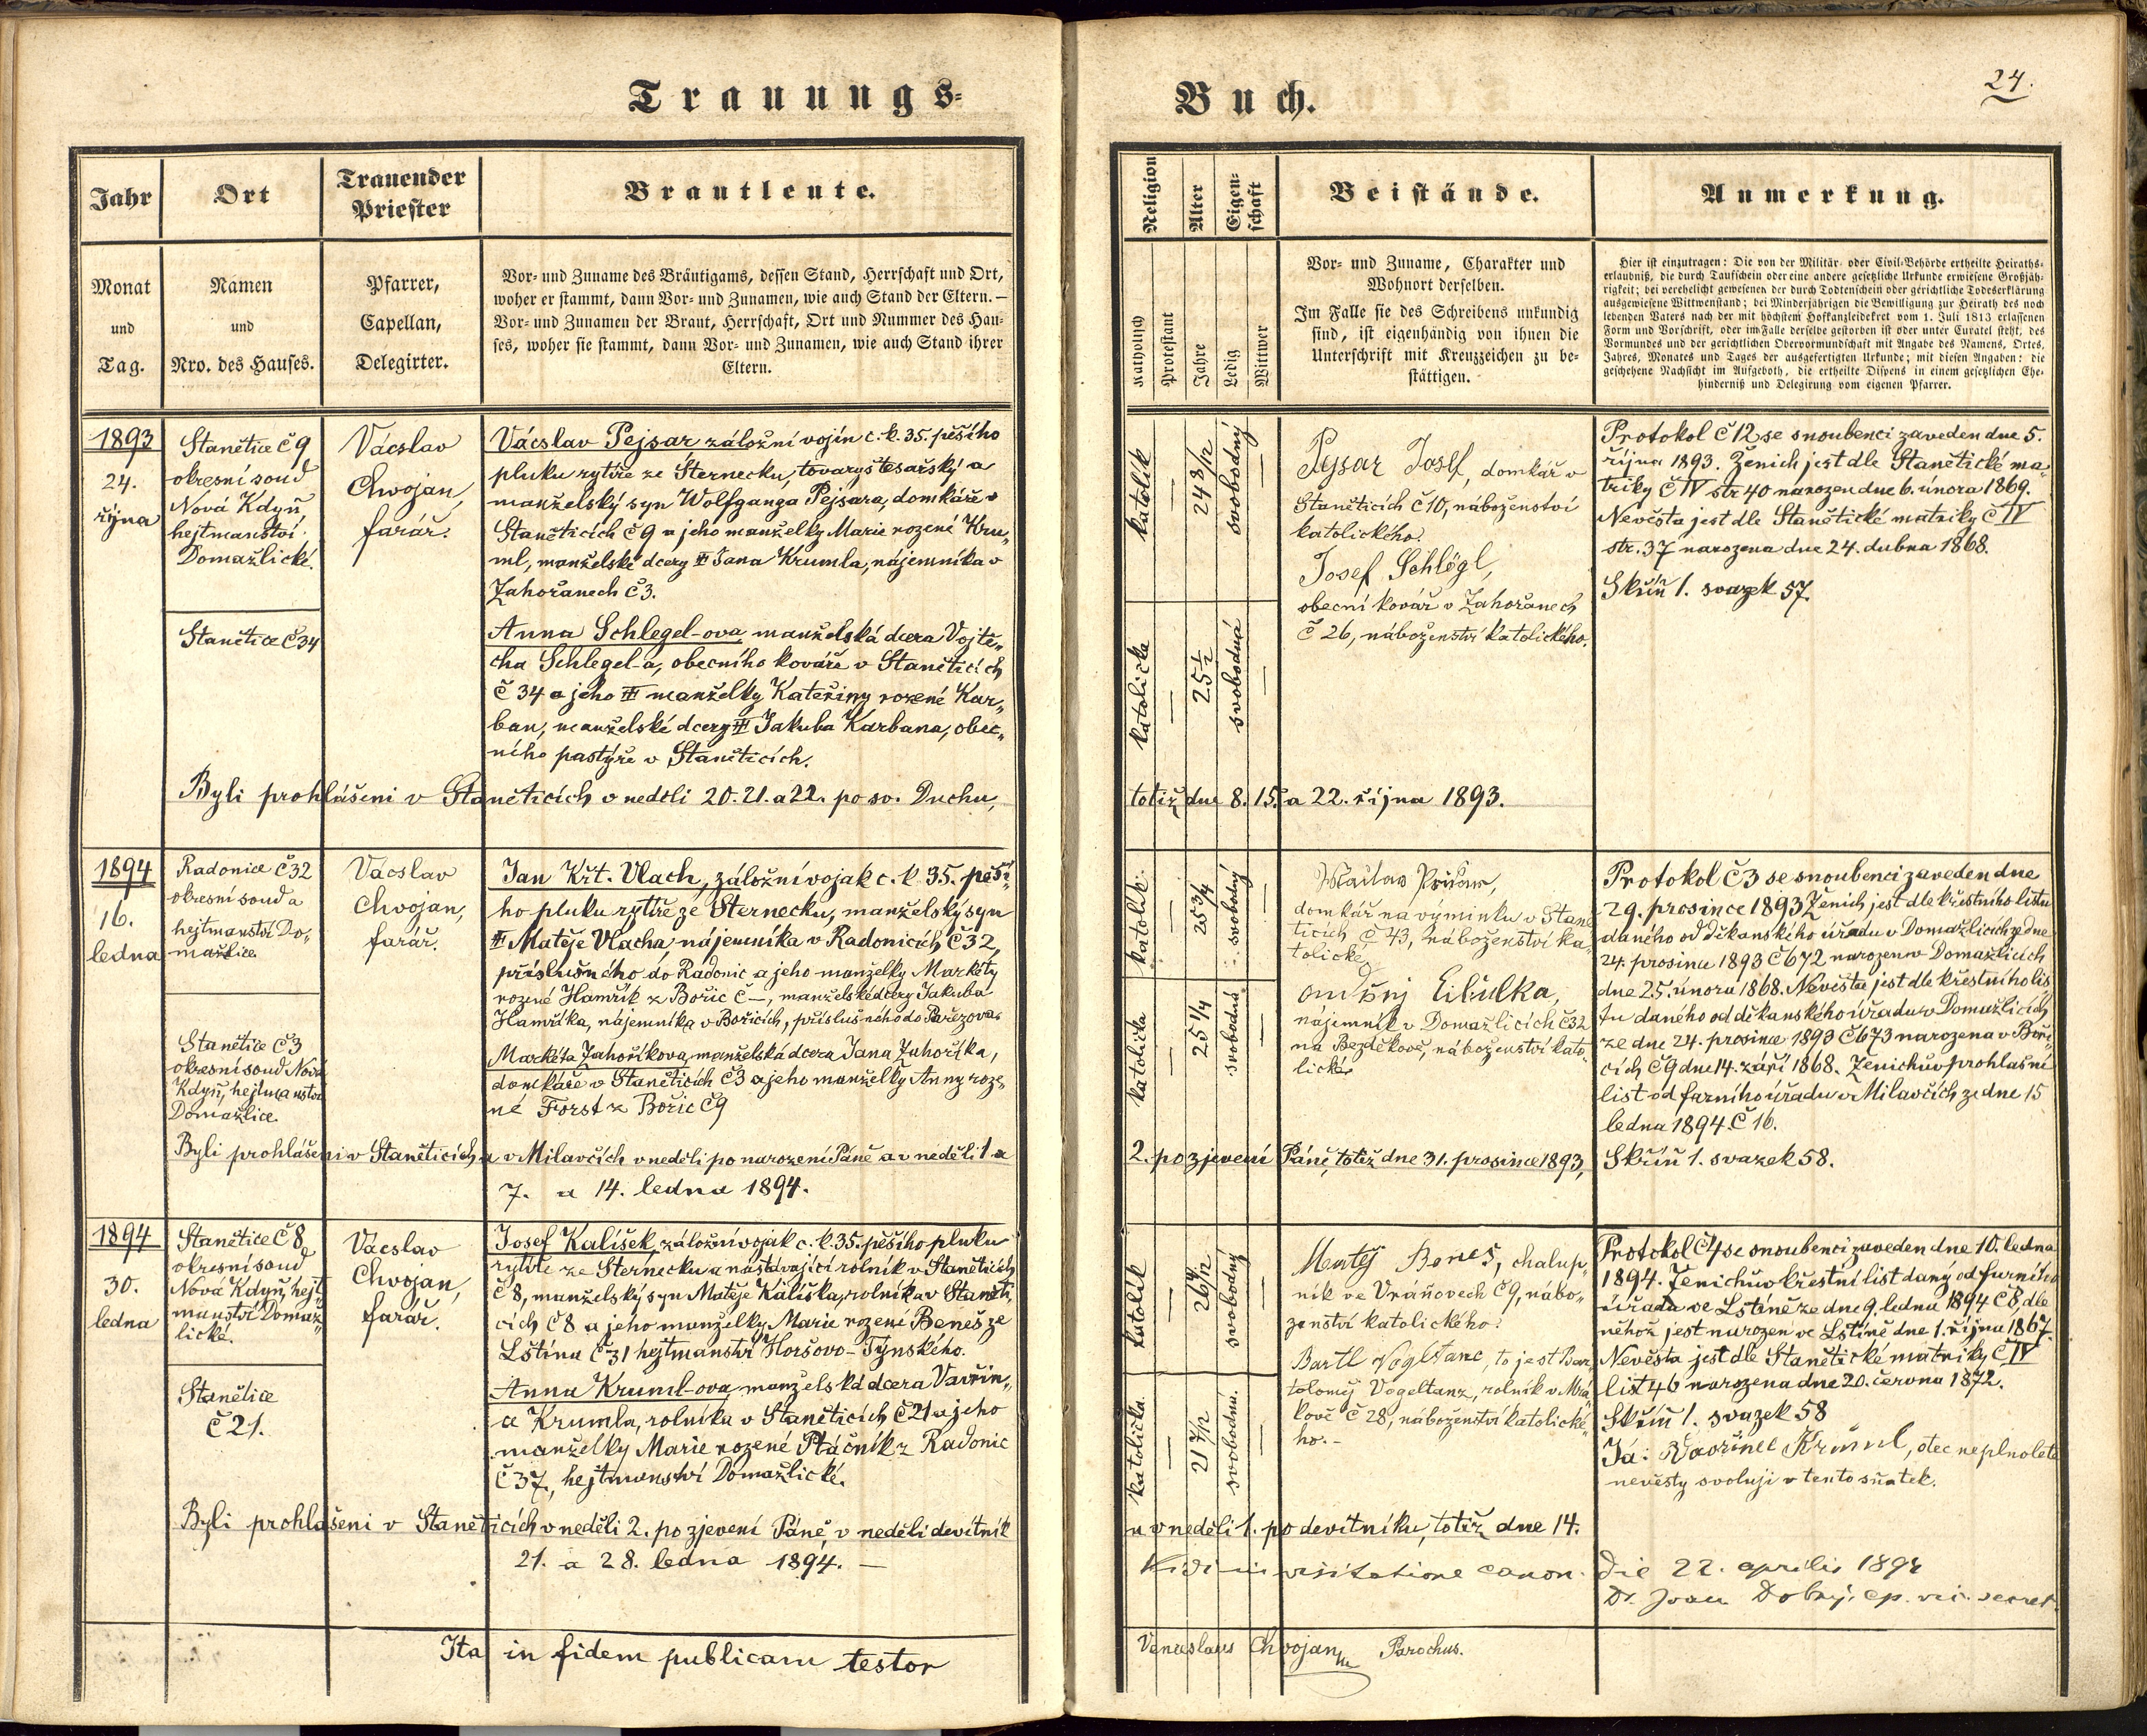 Trauungs-
Buch.
24.
Jahr
Ort
Trauender
Priester
Brautleute.
Monat
und
Tag.
Namen
und
Nro. des Hauses.
Pfarrer,
Capellan,
Delegirter.
Vor- und Zuname des Bräutigams, dessen Stand, Herrschaft und Ort,
woher er stammt, dann Vor- und Zunamen, wie auch Stand der Eltern. —
Vor- und Zunamen der Braut, Herrschaft, Ort und Nummer des Hau-
ses, woher sie stammt, dann Vor- und Zunamen, wie auch Stand ihrer
Eltern.
Religion
Alter
Eigen-
schaft
Beistände.
Anmerkung.
Katholisch
Protestant
Jahre
Ledig
Wittwer
Vor- und Zuname, Charakter und
Wohnort derselben.
Im Falle sie des Schreibens unkundig
sind, ist eigenhändig von ihnen die
Unterschrift mit Kreuzzeichen zu be-
stättigen.
Hier ist einzutragen: Die von der Militär- oder Civil-Behörde ertheilte Heiraths-
erlaubniß, die durch Taufschein oder eine andere gesetzliche Urkunde erwiesene Großjäh-
rigkeit; bei verehelicht gewesenen der durch Todtenschein oder gerichtliche Todeserklärung
ausgewiesene Wittwenstand; bei Minderjährigen die Bewilligung zur Heirath des noch
lebenden Vaters nach der mit höchstem Hofkanzleidekret vom 1. Juli 1813 erlassenen
Form und Vorschrift, oder im Falle derselbe gestorben ist oder unter Curatel steht, des
Vormundes und der gerichtlichen Obervormundschaft mit Angabe des Namens, Ortes,
Jahres, Monates und Tages der ausgefertigten Urkunde; mit diesen Angaben: die
geschehene Nachsicht im Aufgeboth, die ertheilte Dispens in einem gesetzlichen Ehe-
hinderniß und Delegirung vom eigenen Pfarrer.
1893
24.
října
Stanětice č 9
okresní soud
Nová Kdyň,
hejtmanství
Domažlické.
Stanětice č 34
Vácslav
Chvojan,
farář.
Vácslav Pejsar záložní vojín c. k. 35. pěšího
pluku rytíře ze Šternecku, tovaryš tesařský a
manželský syn Wolfganga Pejsara, domkáře v
Staněticích č 9 a jeho manželky Marie rozené Kru„
ml, manželské dcery Jana Krumla, nájemníka v
Zahořanech č 3.
Anna Schlegel-ova manželská dcera Vojtě„
cha Schlegel-a, obecního kováře v Staněticích
č 34 a jeho manželky Kateřiny rozené Kar„
ban, manželské dcery Jakuba Karbana, obec„
ního pastýře v Staněticích.
Byli prohlášeni v Staněticích v neděli 20. 21. a 22. po sv. Duchu,
katolík
24 8/12
svobodný
katolička
25 1/2
svobodná
Pejsar Josef, domkář v
Staněticích č 10, náboženství
katolického.
Josef Schlögl,
obecní kovář v Zahořanech
č 26, náboženství katolického.
Protokol č 12 se snoubenci zaveden dne 5.
října 1893. Ženich jest dle Stanětické ma„
triky č IV str 40 narozen dne 6. února 1869.
Nevěsta jest dle Stanětické matriky č IV
str. 37 narozena dne 24. dubna 1868.
Skříň 1. svazek 57.
totiž dne 8. 15. a 22. října 1893.
1894
16.
ledna
Radonice č 32
okresní soud a
hejtmanství Do„
mažlice.
Stanětice č 3
okresní soud Nová
Kdyň, hejtmanství
Domažlice.
Vácslav
Chvojan,
farář.
Jan Křt. Vlach, záložní vojak c. k. 35. pěší„
ho pluku rytíře ze Sternecku, manželský syn
Matěje Vlacha nájemníka v Radonicích č 32,
příslušného do Radonic a jeho manželky Markéty
rozené Hamřík z Bořic č —, manželské dcery Jakuba
Hamříka, nájemníka v Bořicích, příslušného do Pařezova.
Markéta Zahoříkova, manželská dcera Jana Zahoříka,
domkáře v Staněticích č 3 a jeho manželky Anny roze„
né Forst z Bořic č 9
Byli prohlášeni v Staněticích a v Milavčích v neděli po narození Páně a v neděli 1. a
7. a 14. ledna 1894.
katolík
25 3/4
svobodný
katolička
25 1/4
svobodná
domkář na výminku v Staně
ticích č 43, náboženství ka„
tolické
Cibulka,
nájemník v Domažlicích č 32
na Bezděkově, náboženství kato„
lické.
Protokol č 3 se snoubenci zaveden dne
29. prosince 1893. Ženich jest dle křestního listu
daného od děkanského úřadu v Domažlicích ze dne
24. prosince 1893 č 672 narozen v Domažlicích
dne 25. února 1868. Nevěsta jest dle křestního lis„
tu daného od děkanského úřadu v Domažlicích
ze dne 24. prosince 1893 č 673 narozena v Boři„
cích č 9 dne 14. září 1868. Ženichův prohlašní
list od farního úřadu v Milavčích ze dne 15
ledna 1894 č 16.
Skříň 1. svazek 58.
2. po zjevení Páně, totiž dne 31. prosince 1893,
1894
30.
ledna
Stanětice č 8
okresní soud
Nová Kdyň, hejt„
manství Domaž„
lické.
Stanětice
č 21.
Vácslav
Chvojan,
farář.
Josef Kalíšek, záložní vojak c. k. 35. pěšího pluku
rytíře ze Sternecku a nastávající rolník v Staněticích
č 8, manželský syn Matěje Kalíška, rolníka v Staněti„
cích č 8 a jeho manželky Marie rozené Beneš ze
Lštína č 31 hejtmanství Horšovo-Týnského.
Anna Kruml-ova manželská dcera Vavřin„
a Krumla, rolníka v Staněticích č 21 a jeho
manželky Marie rozené Ptáčník z Radonic
č 37, hejtmanství Domažlické.
Byli prohlášeni v Staněticích v neděli 2. po zjevení Páně, v neděli devítník
21. a 28. ledna 1894. —
katolík
26 4/12
svobodný
katolička
21 7/12
svobodná.
Matěj Beneš, chalup„
ník ve Vráňovech č 9, nábo„
ženství katolického.
Bartl Vogltanc, to jest Bar„
toloměj Vogeltanz, rolník v Mrá„
kově č 28, náboženství katolické„
ho. —
Protokol č 4 se snoubenci zaveden dne 10. ledna
1894. Ženichův křestní list daný od farního
úřadu ve Lštíně ze dne 9. ledna 1894 č 8, dle
něhož jest narozen ve Lštíně dne 1. října 1867.
Nevěsta jest dle Stanětické matriky č IV
list 46 narozena dne 20. června 1872.
Skříň 1. svazek 58
Já: Vavřinec Kruml, otec neplnoleté
nevěsty svoluji v tento sňatek.
a v neděli 1. po devítníku, totiž dne 14.
Vidi in visitatione canon. die 22. aprilis 1894
Dr. Joan Dobrý, ep. vic. secret.
Ita in fidem publicam testor
Venceslaus Chvojan Parochus.